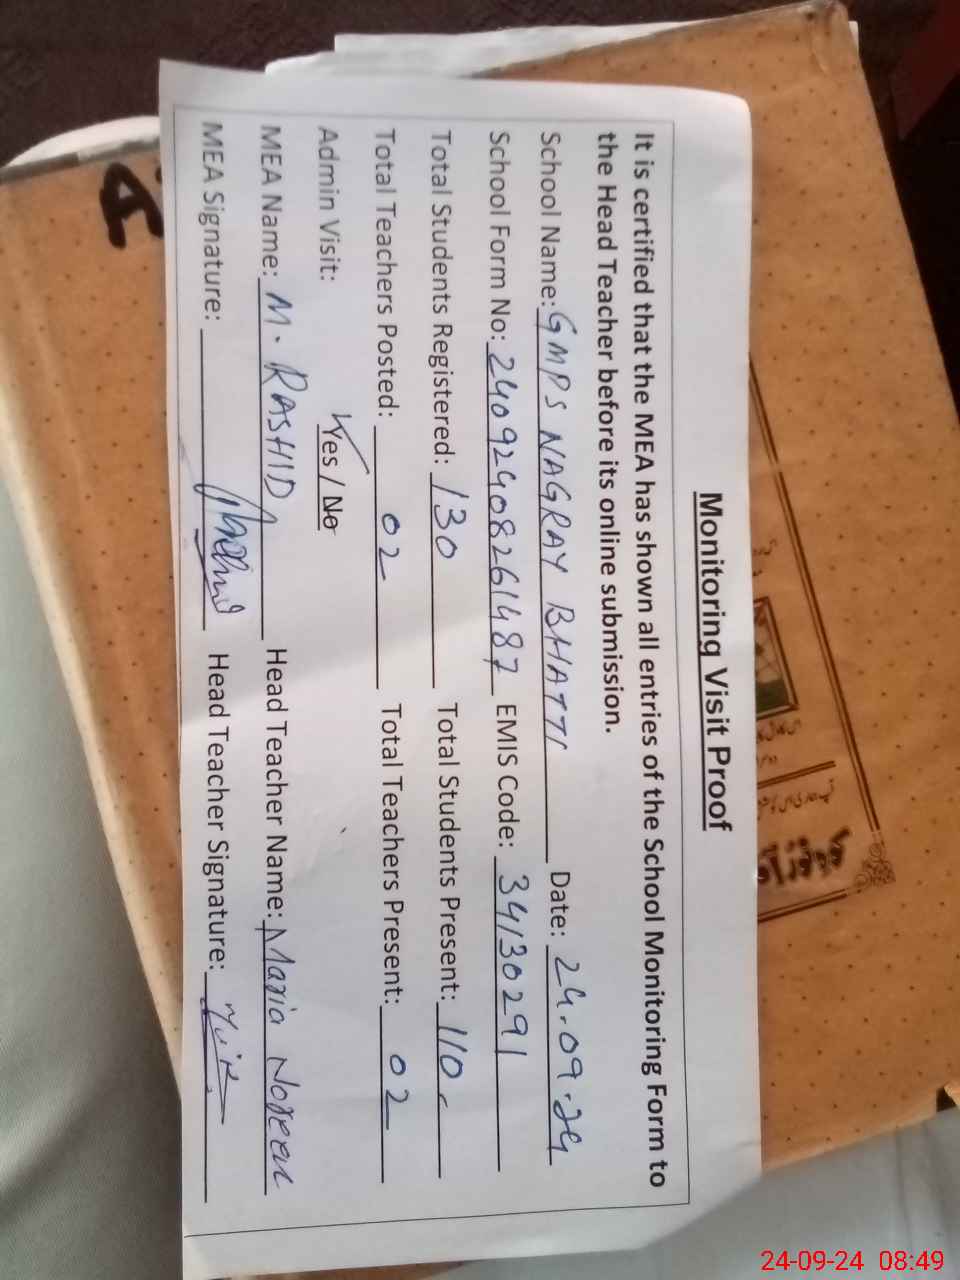 Monitoring Visit Proof
It is certified that the MEA has shown all entries of the School Monitoring Form to
the Head Teacher before its online submission.
School Name: GMPS NAGRAY BHATTI Date: 24.09.24
School Form No: 24092408261487 EMIS Code: 34130291
Total Students Registered: 130 Total Students Present: 110
Total Teachers Posted: 02 Total Teachers Present: 02
Admin Visit: Yes / No
MEA Name: M. RASHID Head Teacher Name: Maria Noreen
MEA Signature: Head Teacher Signature:
24-09-24 08:49